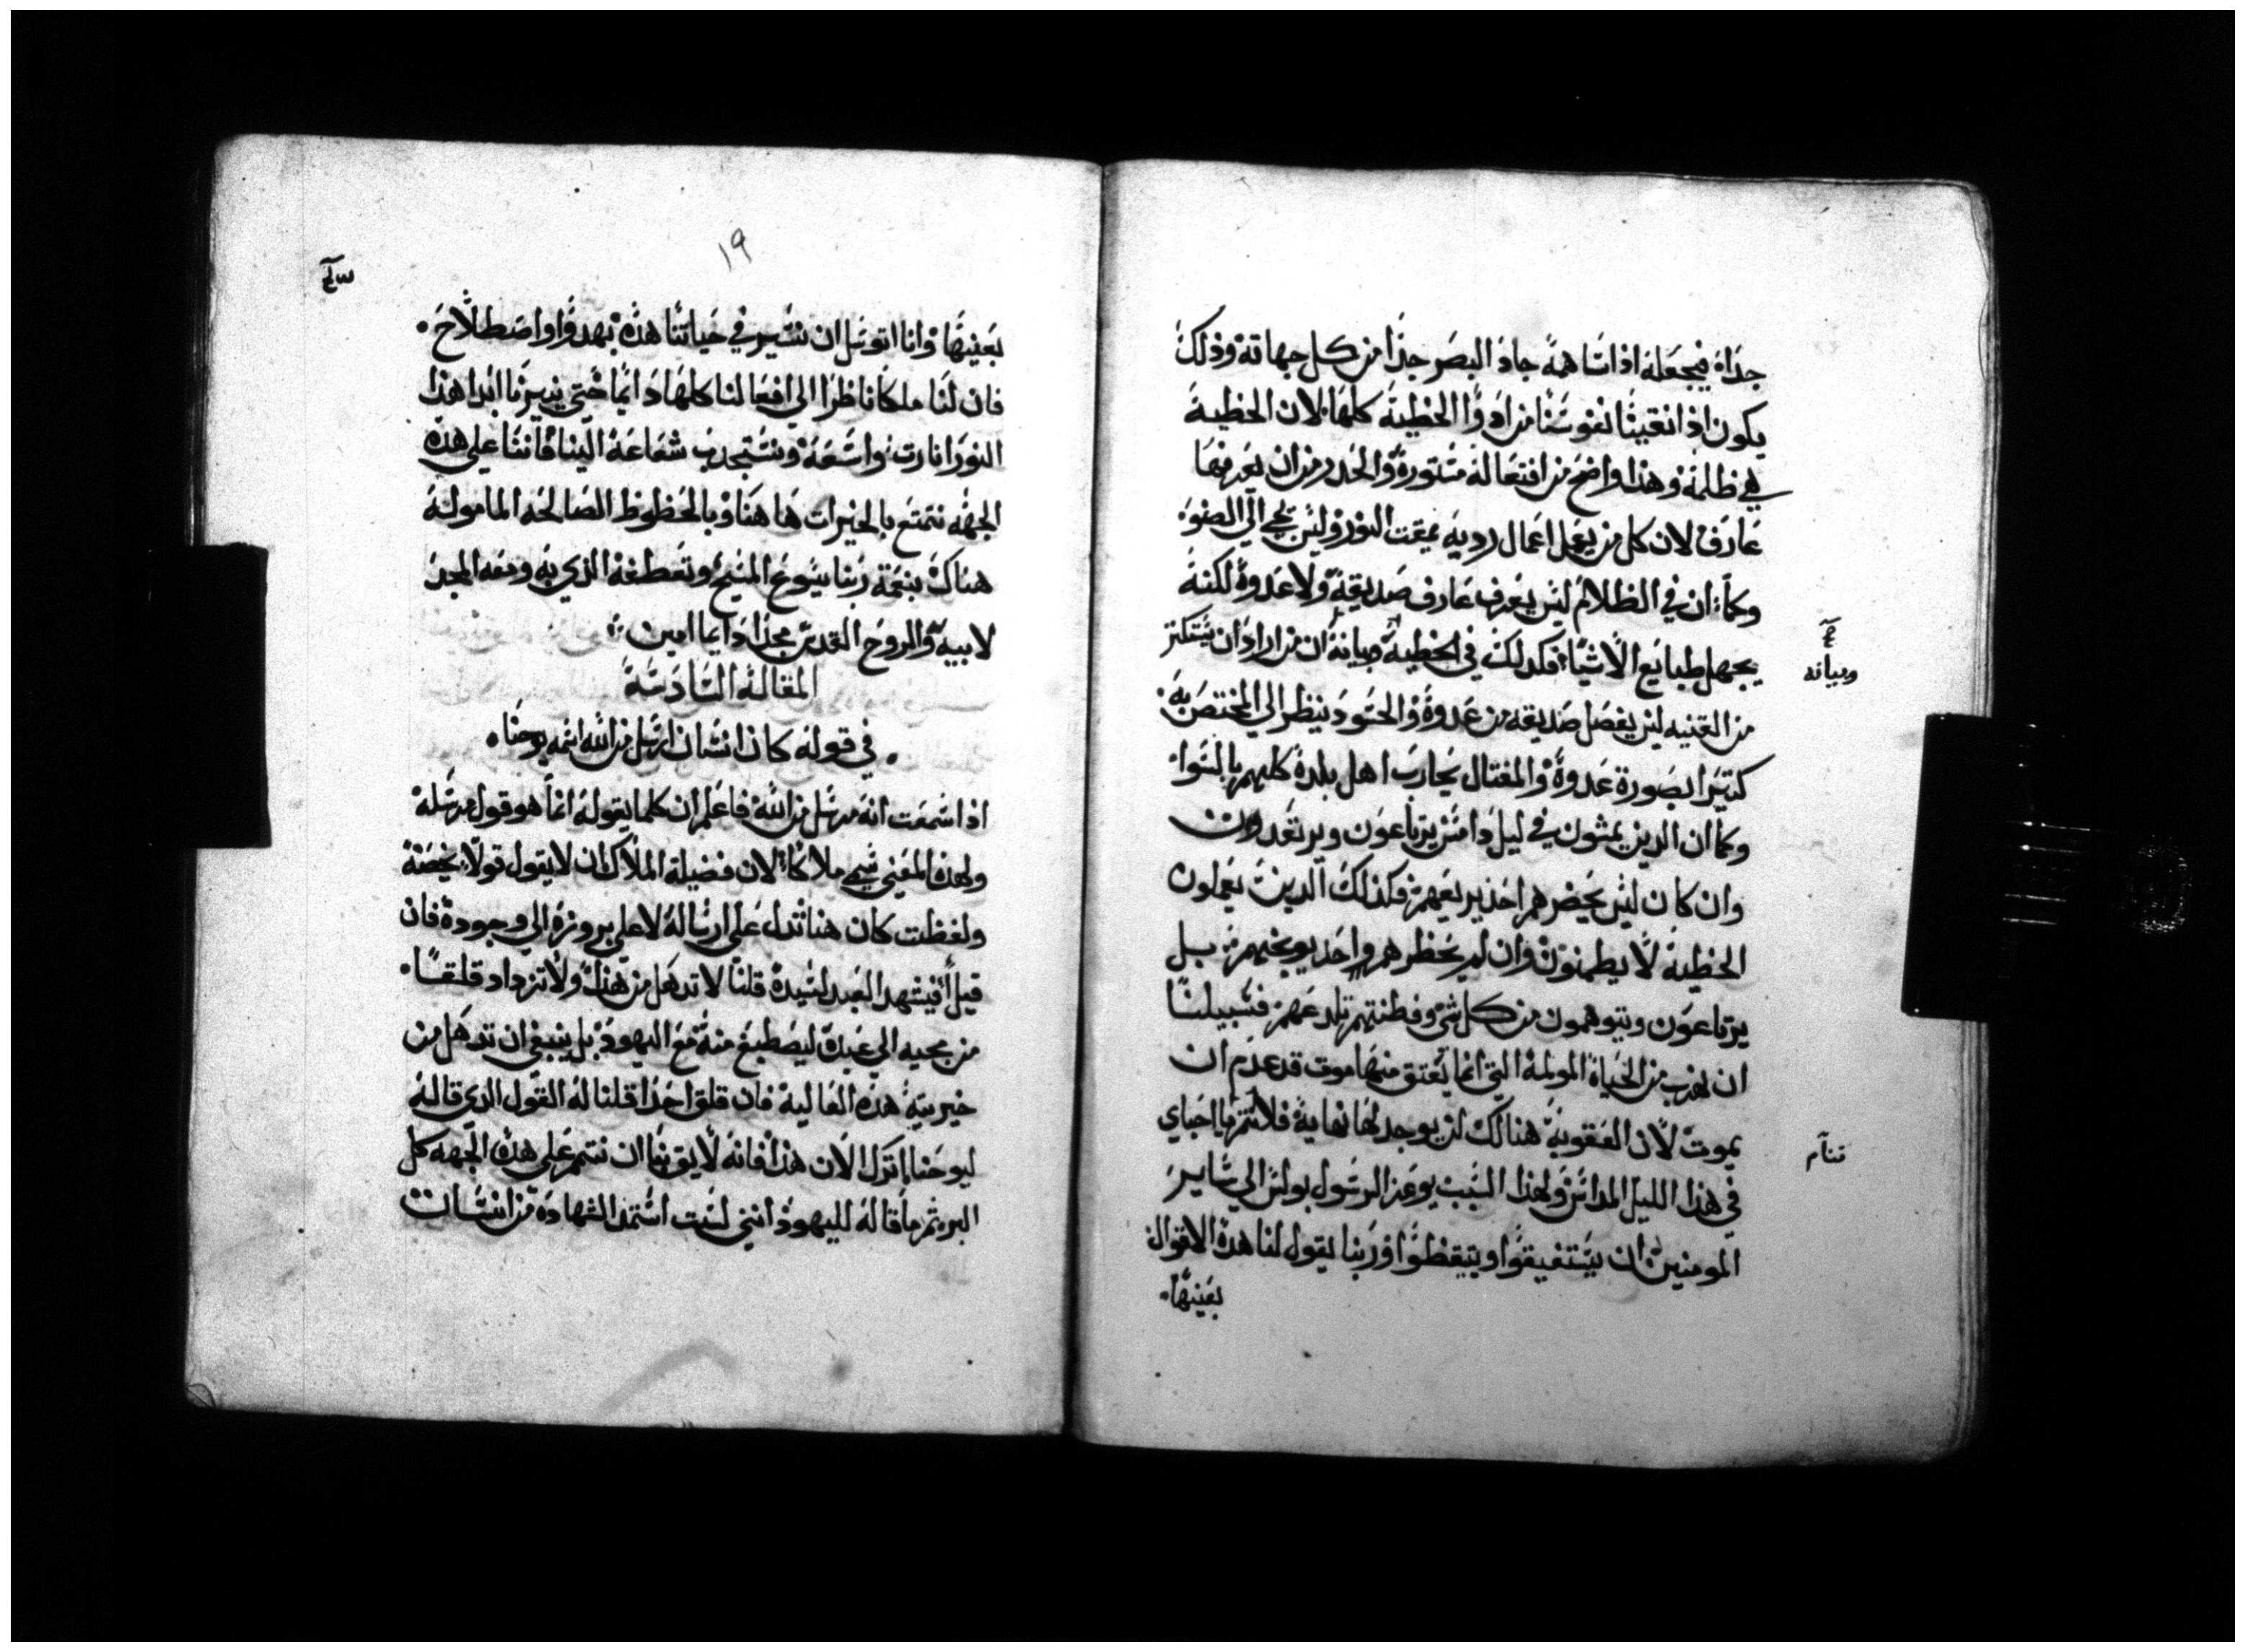 جداه فيجعله اذا تساهمه جاد البصر جدا من كل جهاته وذلك
يكون اذا نقينا نفوسنا من ادوا الخطية كلها لان الخطية
في ظلمة وهذا واضح من افتعاله مستوره والحدر من ان يعرفها
عارف لان كل من يعمل اعمال رديه يمقت النور وليس يجي الي الضوء
وكما ان في الظلام ليس يعرف عارف صديقه ولا عدوه لكنه
يجهل طبايع الاشيا فكدلك في الخطية وبيانه ان من اراد ان يستكتر
من القنيه ليس يفصل صديقه من عدوه والحسود ينظر الي المختص به
كتيرا بصورة عدوه والمغتال يحارب اهل بلده كلهم بالسوا
وكما ان الدين يمشون في ليل دامس يرتاعون ويرتعدون
وان كان ليس يحضرهم احد يريعهم فكدلك الدين يعملون
الخطية لا يطمنون وان لم يحظرهم واحد يوبخهم بل
يرتاعون ويتوهمون من كل شي وفطنتهم تلدعهم فسبيلنا
ان نهرب من الحياة المولمة التي انما يعتق منها موت قد عدم ان
يموت لان العقوبة هنالك لن يوجد لها نهاية فلا تتم يا احباي
في هذا الليل الدامس ولهذا السبب يوعز الرسول بولس الي ساير
المومنين ان يستفيقوا ويتيقظوا وربنا يقول لنا هده الاقوال
بعينها
وبيانه
ننام
١٩
بعينها وانا اتوسل ان نسير في حياتنا هده بهدوا واصطلاح
فان لنا ملكا ناظرا الي افعالنا كلها دايما حتي ينيرنا ابدا هذا
النور انارت واسعة ونستجدب شعاعه الينا فاننا علي هده
الجهه نتمتع بالخيرات هاهنا وبالحظوظ الصالحه المامولة
هناك بنعمة ربنا يسوع المسيح وتعطفه الذي به ومعه المجد
لابيه والروح القدس مجدا دايما امين
المقالة السادسة
في قوله كان انسان ارسل من الله اسمه يوحنا
ادا سمعت انه مرسل من الله فاعلم ان كلما يقوله انما هو قول مرسله
ولهذا المعني سمي ملاكا لان فضيلة الملاك ان لا يقول قولا يخصه
ولفظت كان هنا تدل علي ارساله لا علي بروزه الي وجوده فان
قيل افيشهد العبد لسيده قلنا لا تدهل من هدا ولا تزداد قلقا
من مجيه الي عبده ليصطبغ منه مع اليهود بل ينبغي ان تدهل من
خيريته هده الغالية فان قلق احدا قلنا له القول الدي قاله
ليوحنا اترك الان هدا فانه لايق بنا ان نتمم علي هده الجهه كل
البر ثم ما قاله لليهود انني لست استمد الشهادة من انسان